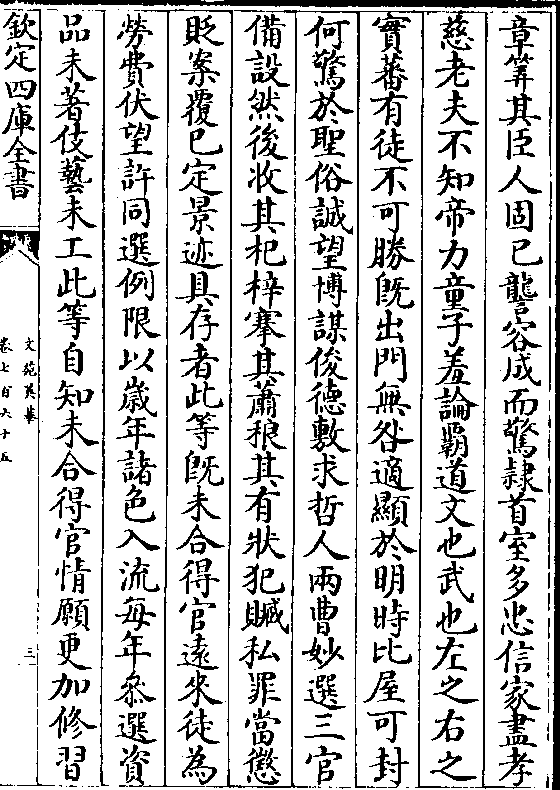 章筭其臣人固已讋容成而驚隷首室多忠信家盡孝
慈老夫不知帝力童子羞論霸道文也武也左之右之
實蕃有徒不可勝旣出門無咎適顯於明時比屋可封
何驚於聖俗誠望博謀俊德敷求哲人兩曹妙選三官
備設然後收其杞梓搴其蕭稂其有狀犯贓私罪當懲
貶案覆已定景迹具存者此等旣未合得官遠來徒為
勞費伏望許同選例限以歲年諸色入流每年叅選資
品未著伎藝未工此等自知未合得官情願更加修習
欽定四庫全書
文苑英華
卷七百六十五
三